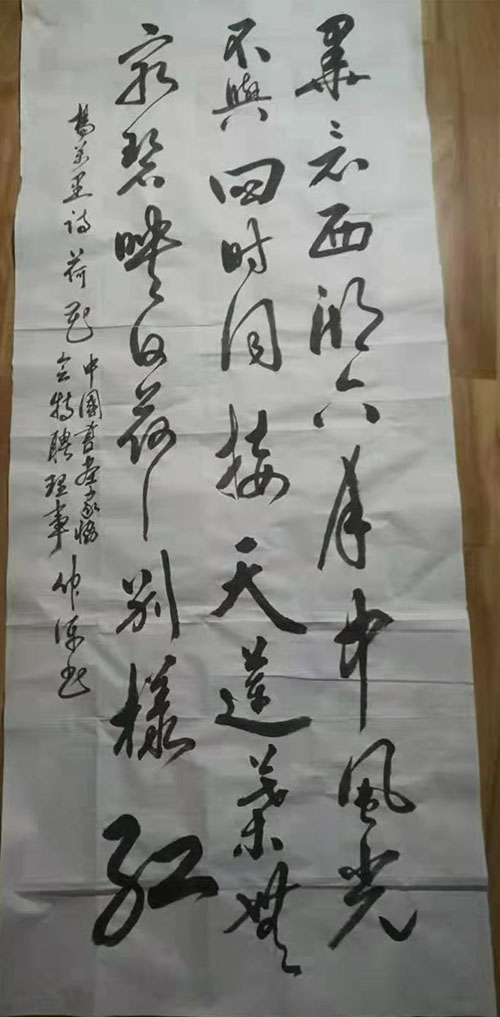 畢竟西湖六月中風光
不與四时同接天蓮葉無
穷碧映日荷花别樣红
楊万里诗荷花
中國書畫家協
会特聘理事
仲
书